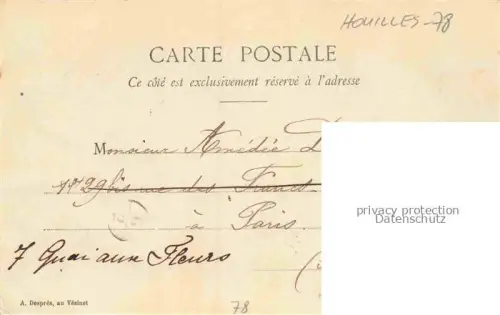 HOUILLES-78
CARTE POSTALE
Ce côté est exclusivement réservé à l'adresse
Monsieur Amédée
29 bis rue des Francs
à Paris
7 Quai aux Fleurs
privacy protection
Datenschutz
A. Desprès, au Vésinet
78